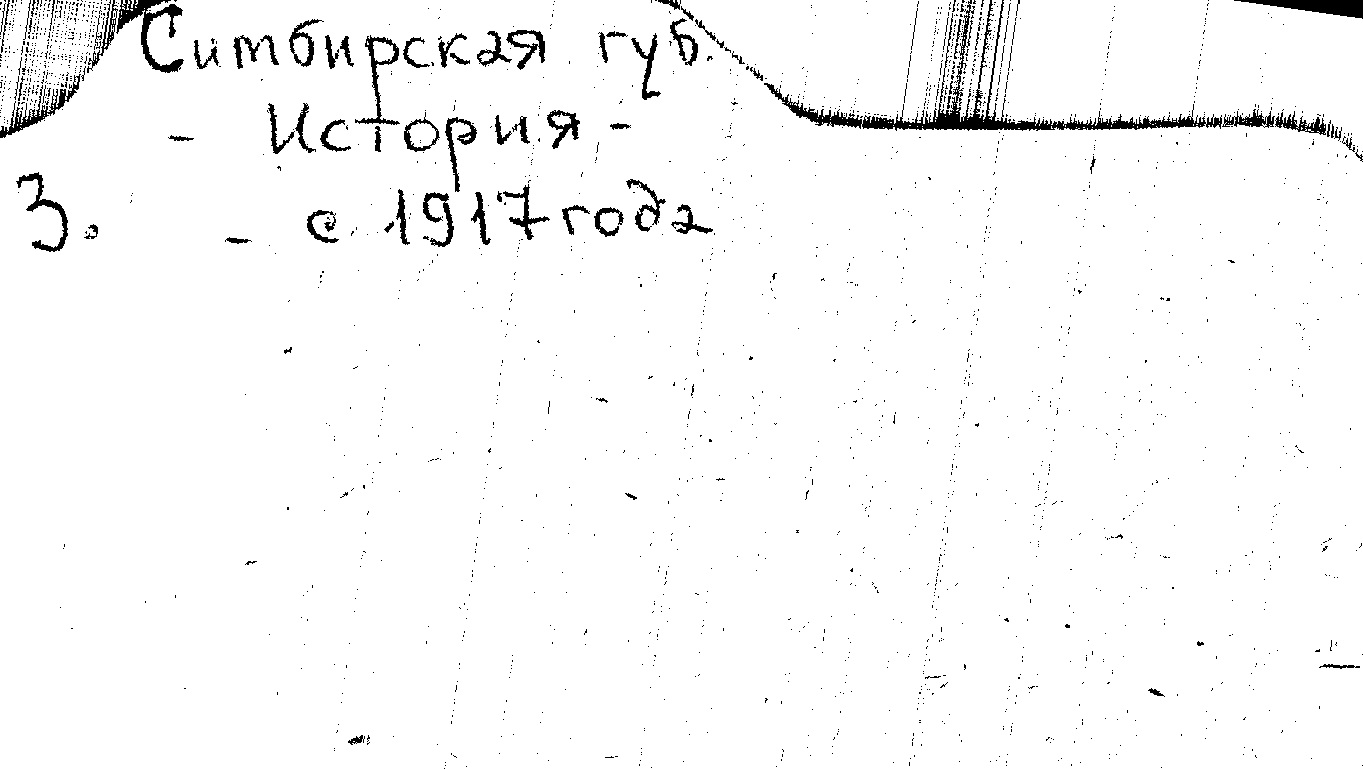 Симбирская губ.
- История -
3. - с 1917 года